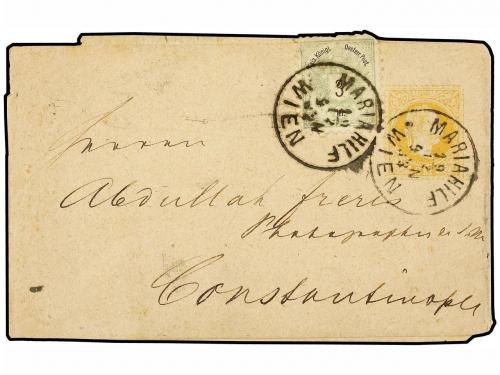 Kais. Königl. Oesterr. Post.
3
MARIAHILF
WIEN
MARIAHILF
WIEN
Herrn
Abdullah freres
Constantinople